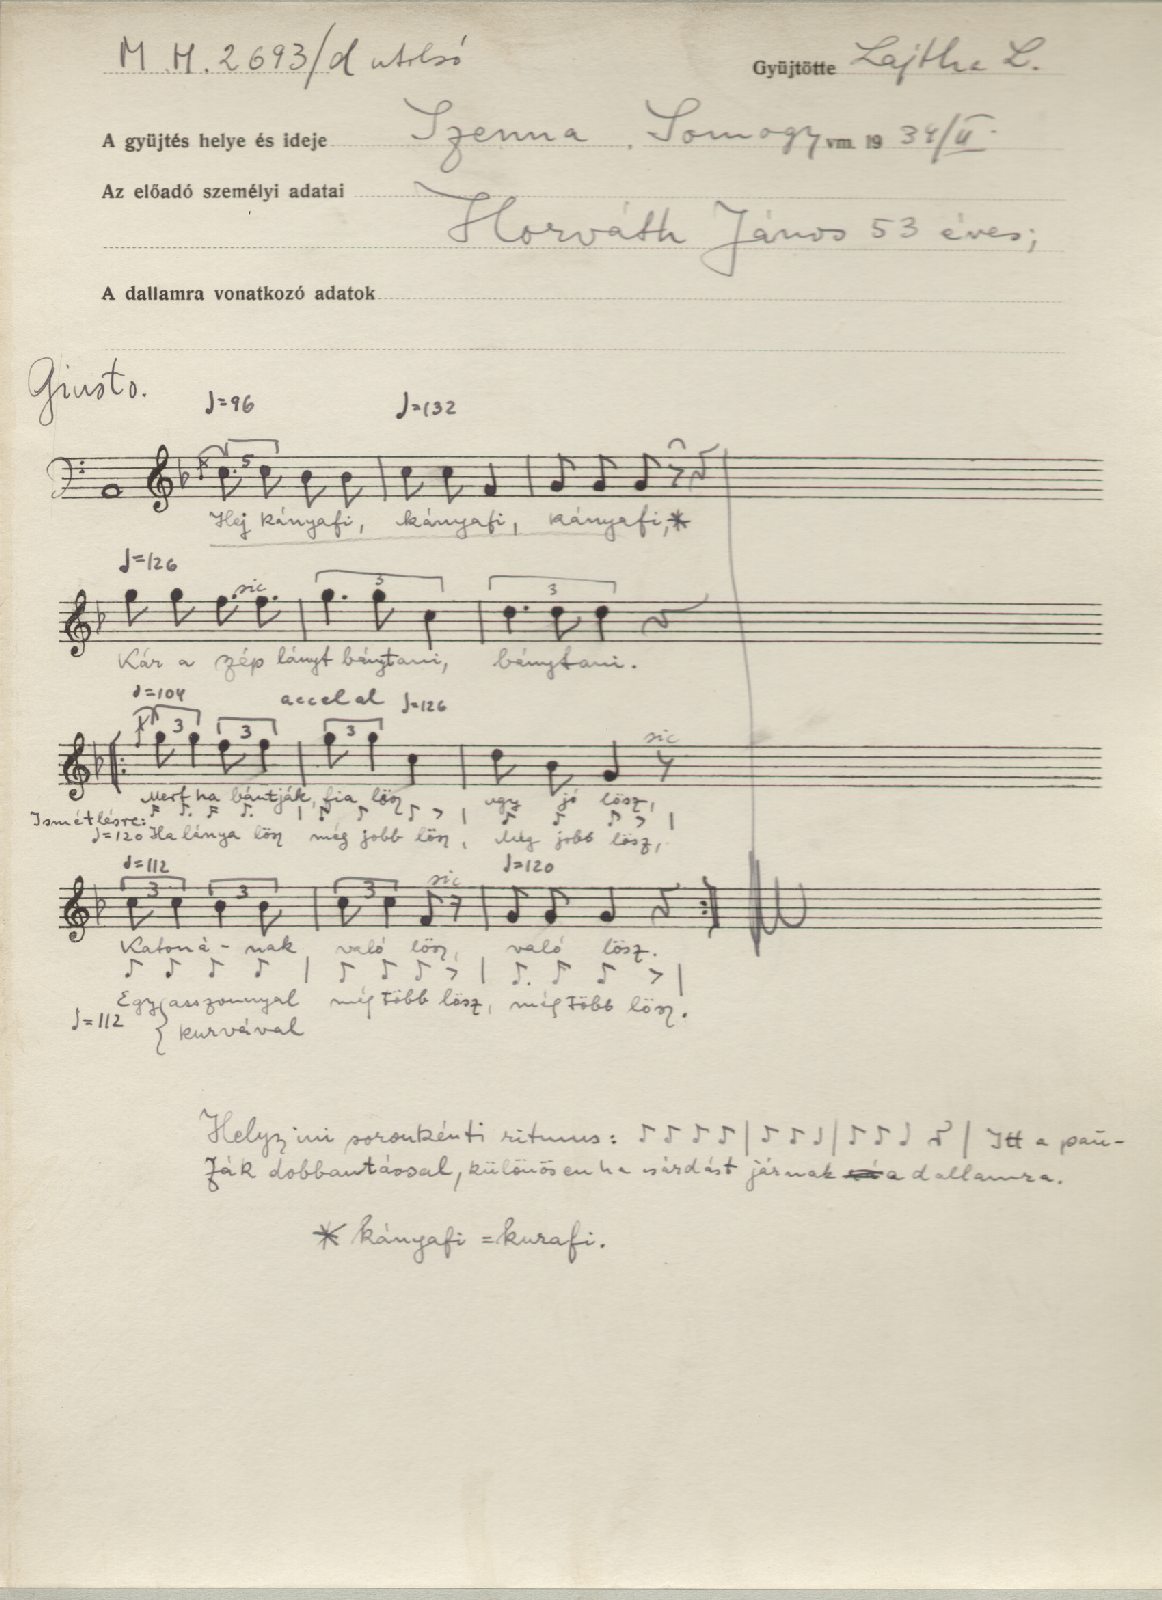 M. H. 2693/d utolsó Gyüjtötte Lajtha L.
A gyüjtés helye és ideje Szenna, Somogy vm. 19 34/II.
Az előadó személyi adatai
Horváth János 53 éves;
A dallamra vonatkozó adatok
Giusto.
♩=96 ♩=132
5
Hej kányafi, kányafi, kányafi,*
♩=126
sic 3 3
Kár a zép lányt bántani, bántani.
♩=104 accel al ♩=126
3 3 3 sic
Mert ha bántják, fia lösz ugy jó lösz,
Ismétlésre:
♩=120 Ha lánya lösz még jobb lösz, Még jobb lösz,
♩=112 ♩=120
3 3 3 sic
Katoná - nak való lösz, való lösz.
Egy asszonnyal még több lösz, még több lösz.
♩=112 { kurvával
Helyzini soronkénti ritmus: ♪♪♪♪|♪♪♩|♪♪♩ 𝄽| Itt a pau-
zák dobbantással, különösen ha csárdást járnak a dallamra.
* kányafi = kurafi.